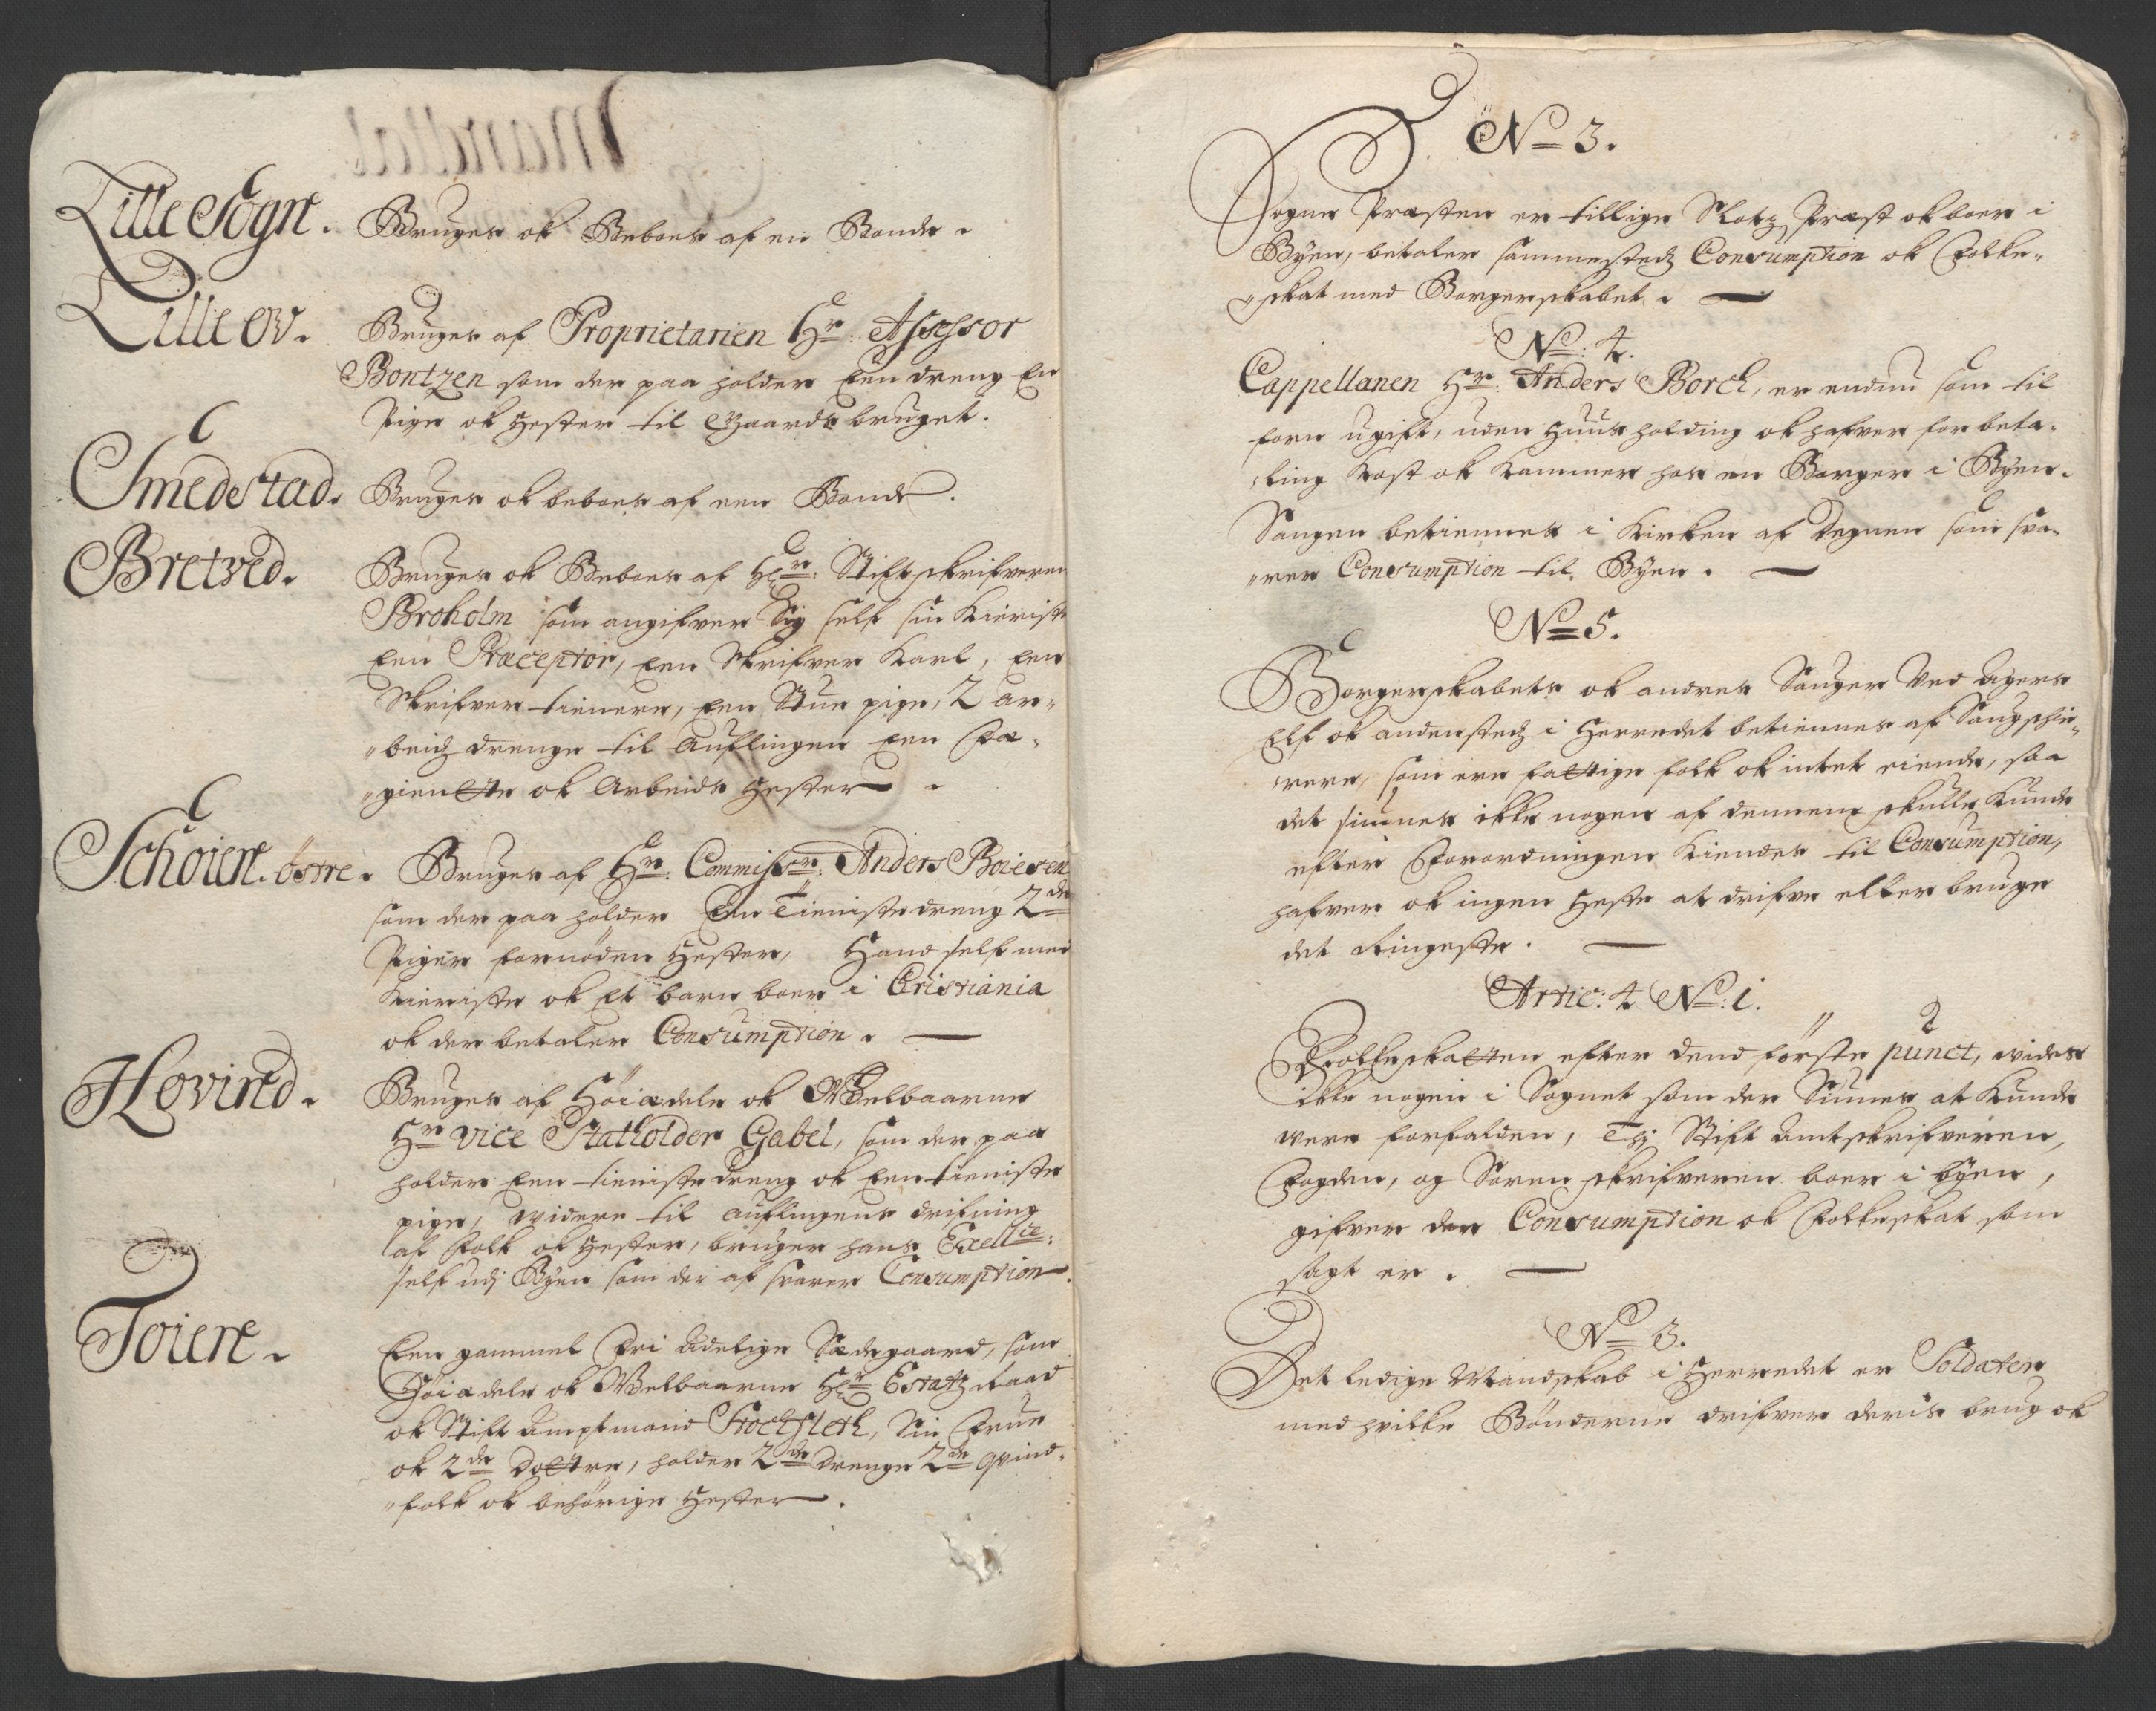 Lille Sogn. Bruges ok Beboes af en Bonde.
Lille ov. Bruges af Proprietarien Hr: Assessor
Bontzen som der paa holder Een dreng En
Pige ok Hester til Gaards bruget.
Smedestad. Bruges ok beboes af een Bonde.
Bretved. Bruges ok Beboes af Hr: Stiftskrifveren
Broholm som angifver Sig self sin Kieriste
Een Præceptor, Een Skrifver Karl, Een
Skrifver tienere, Een Stue pige, 2 ar„
„beidz drenge til Auflingen Een Fæ„
„giente ok Arbeids Hester.
Schøien østre. Bruges af Hr: Commissr: Anders Boiesen
som der paa holder En Tieniste dreng 2de
Piger fornøden Hester, Hand self med
Kieriste ok Et barn boer i Cristiania
ok der betaler Consumption.
Hovind. Bruges af Høiædele ok Welbaarne
Hr Vice Statholder Gabel, som der paa
holder Een tieniste dreng ok Een tieniste
pige, widere til auflingens drifning
af Folk ok Hester, bruger hans Excellce:
self udj Byen som der af svarer Consumption.
Toien. Een gammel Fri Adelige Sædegaard, som
Høiædele ok Welbaarne Hr Estatz Raad
ok Stift Amptmand Tochsleth, Sin Frue
ok 2de Døttre, holder 2de Drenge 2de qvind„
„folk ok behørige Hester.
No 3.
Sogne Præsten er tillige Slotz Præst ok boer i
Byen, betaler sammestedz Consumption ok Folke„
„skat med Borgerskabet.
No: 4.
Cappellanen Hr: Anders Borch, er endnu som til
forn ugift, uden Huusholding ok hafver for beta„
„ling Kost ok Kammer hos en Borger i Byen.
Sangen betiennes i Kirken af Degnen som sva„
„rer Consumption til Byen.
No 5.
Borgerskabets ok andres Sauger Ved Agers
Elf ok andenstedz i Herredet betiennes af Saugskie„
„rere, som ere fattige folk ok intet eiende, saa
det siunes ikke nogen af dennem skulle Kunde
efter Forordningen Kiendes til Consumption,
hafver ok ingen Heste at drifve eller bruge
det Ringeste.
Artic: 4 No: 1.
Folkeskatten efter dend første punct, wides
ikke nogen i Sognet som der Siunes at Kunde
were forfalden, Thj Stift Amtskrifveren,
Fogden, og Sorenskrifveren boer i byen,
gifver der Consumption ok Folkeskat som
sagt er.
No 3.
Det ledige Mandskab i Herredet er Soldater
med hvilke Bønderne drifver deris brug ok